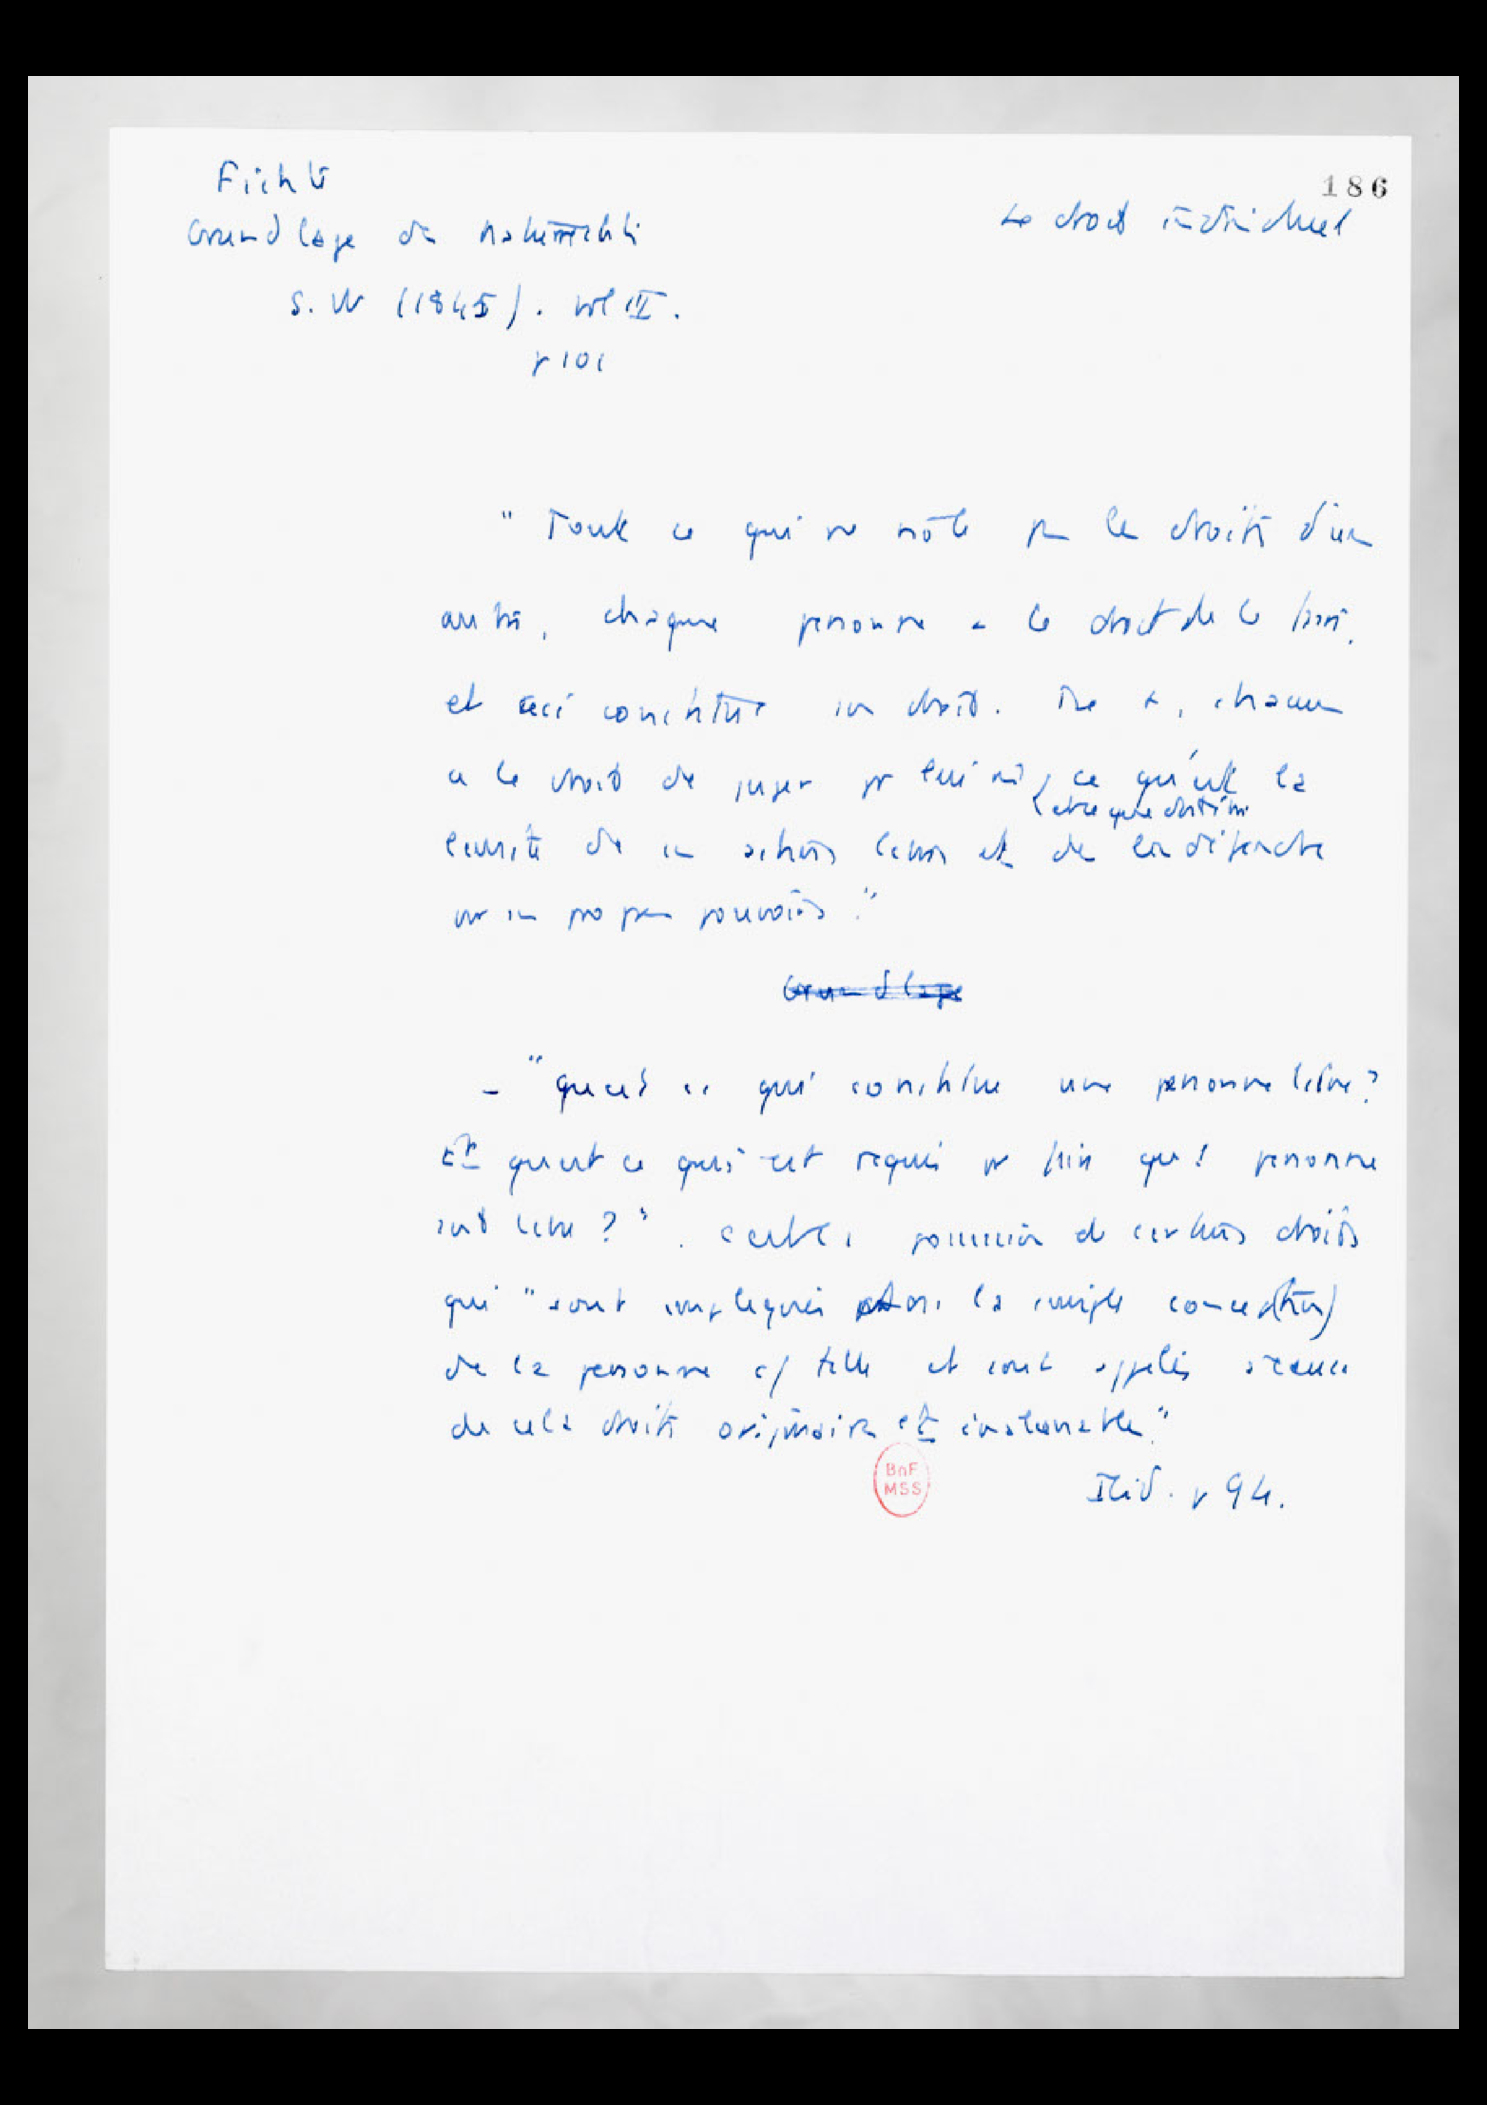 186
Fichte
Le droit individuel
Grundlage des Naturrechts
S. W (1845). vol III.
p 101
" Toute ce qui ne viole pas les droits d'un
autre, chaque personne a le droit de le faire,
et ceci constitue son droit. De +, chacun
a le droit de juger par lui m̂ ce qu'est la
ce que doit être
limite de ses actions libres et de les défendre
par ses propres pouvoirs."
Grundlage
- "Qu'est ce qui constitue une personne libre?
Et qu'est ce qui est requis pr faire qu'1 personne
soit libre?". C'est la possession de certains droits
qui "sont impliqués dans la simple conception
de la personne c/ telle et sont appelés à cause
de cela droits originaires et inaliénables."
Ibid. p 94.
BnF
MSS